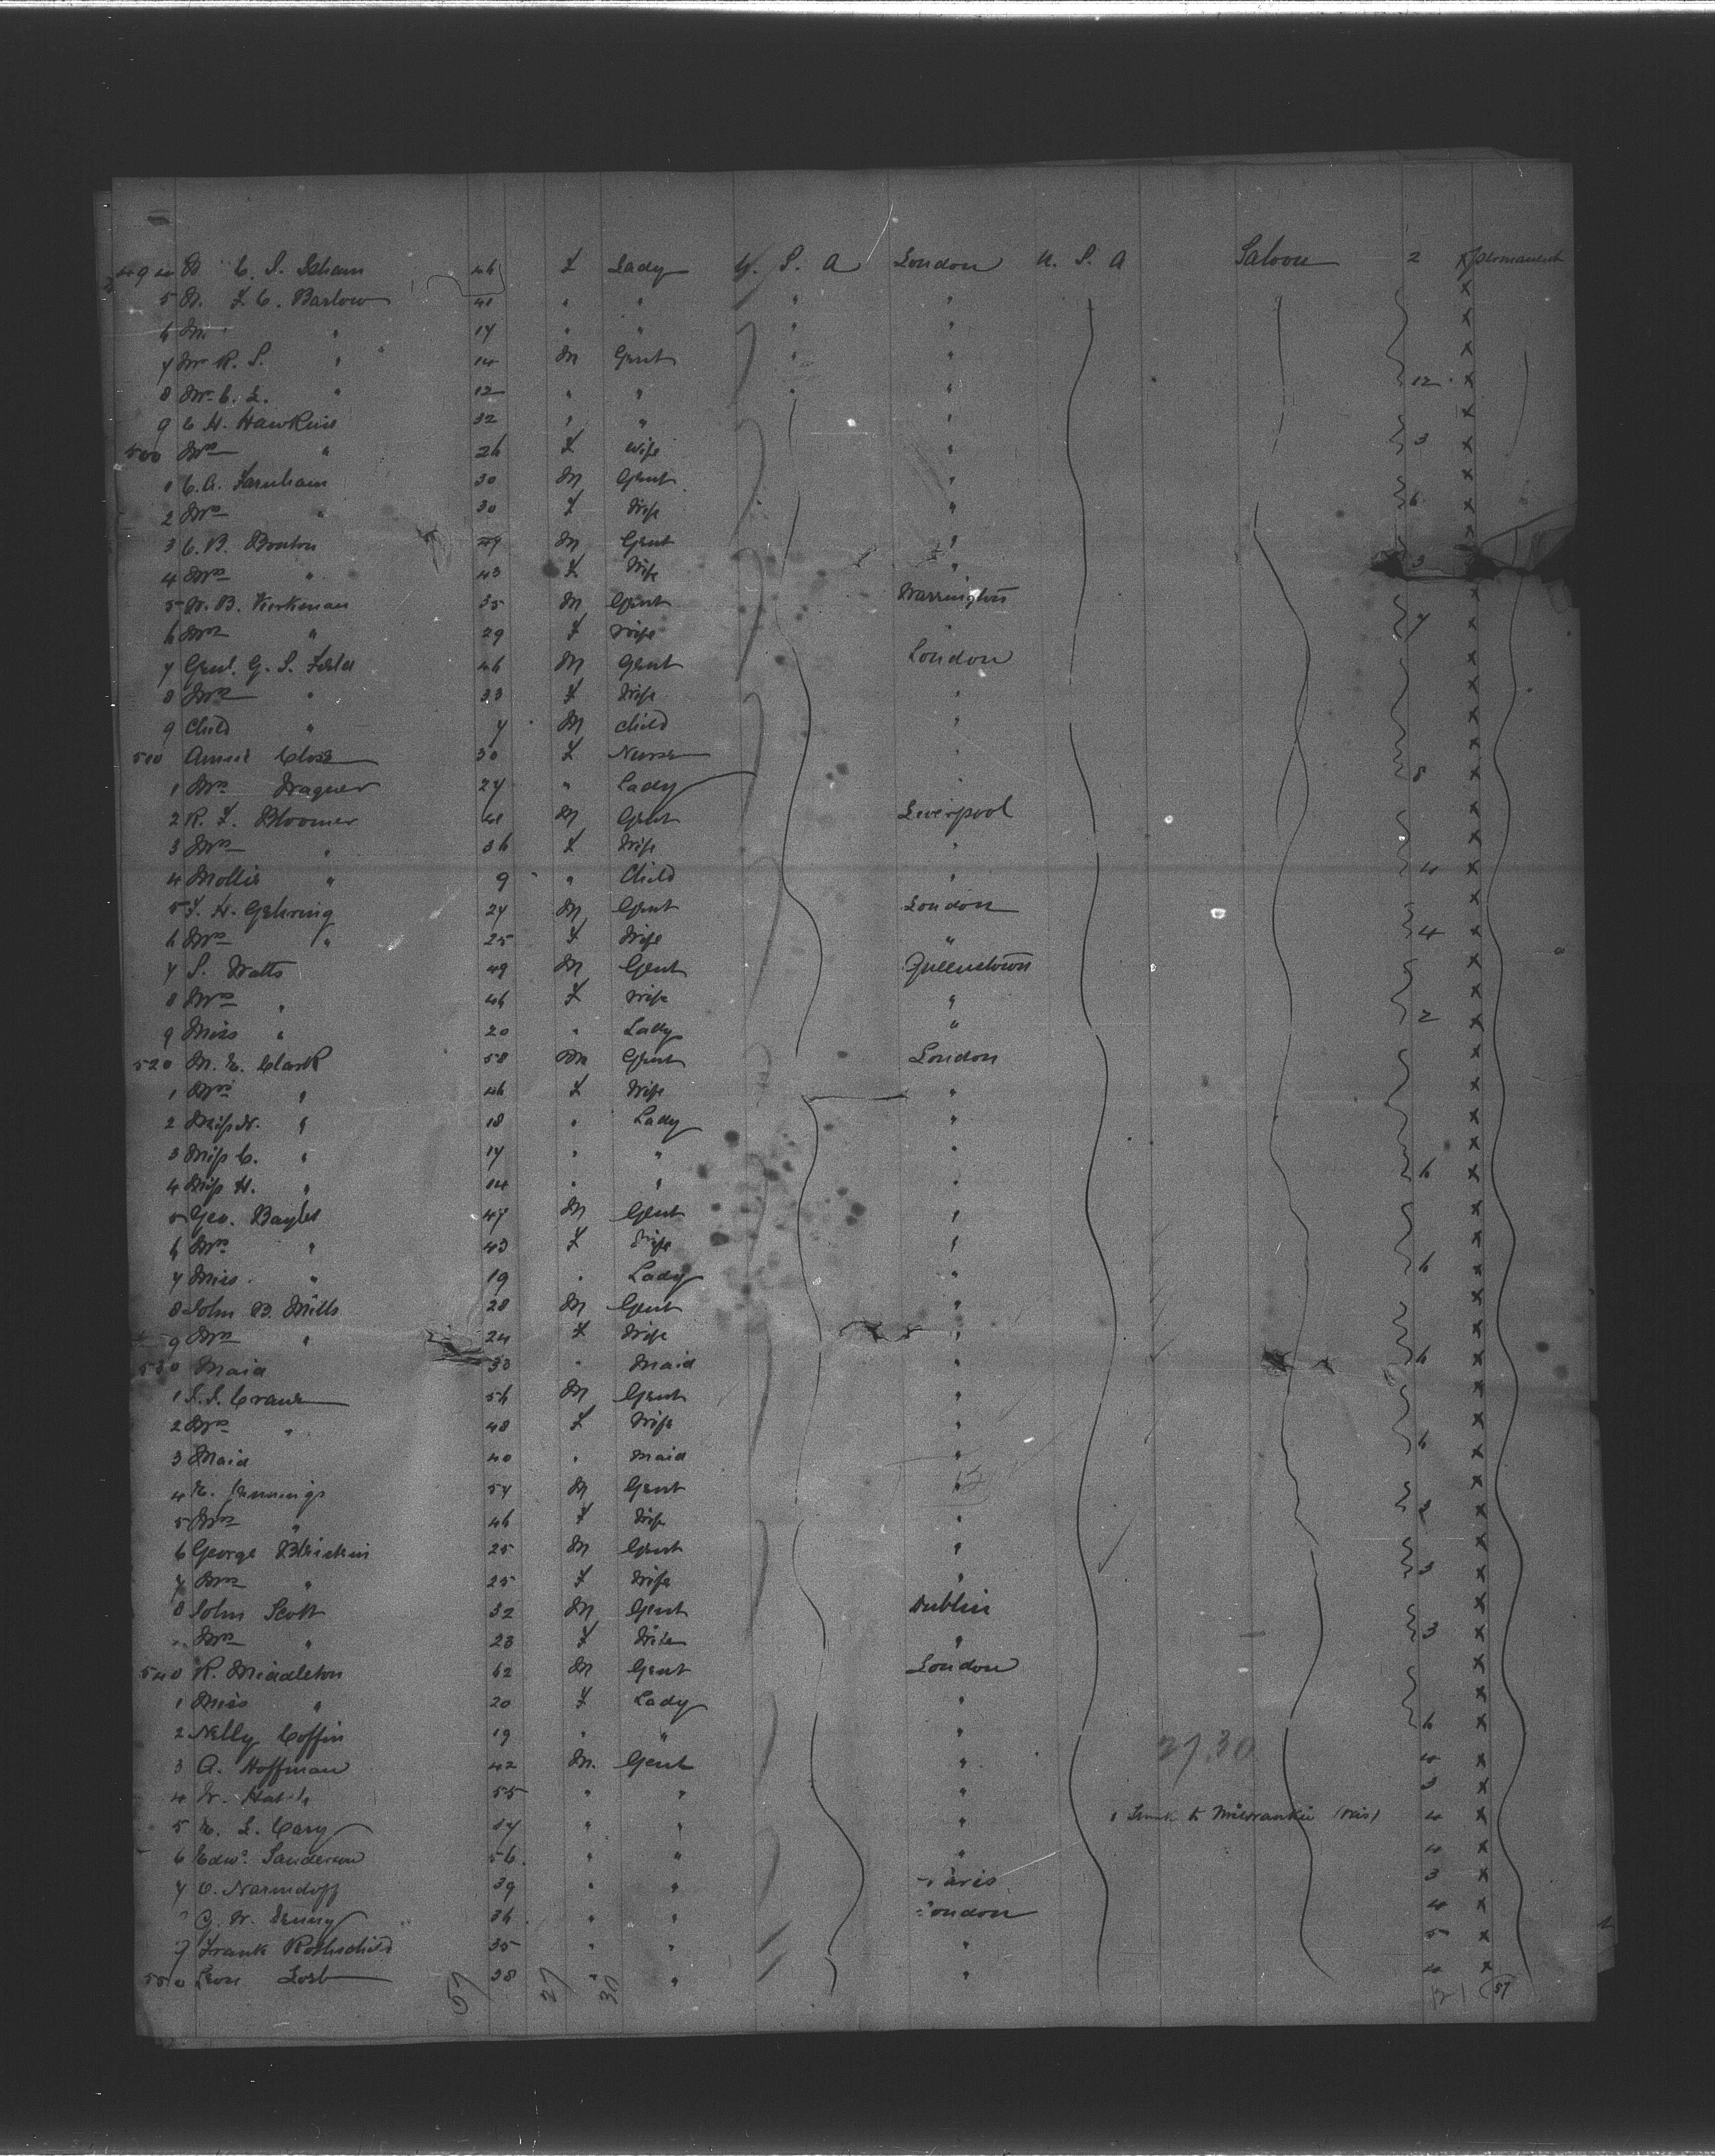 494 C. S. Isham 46 F Lady U. S. A London U. S. A Saloon 2 x
5 F. C. Barlow 41 " " " " x
6 " 17 " " " " x
7 Mr R. S. " 14 M Gent " " x
8 Mr C. L. " 12 " " " " 12 x
9 C H. Hawkins 32 " " " x
500 Mrs " 26 F Wife " 3 x
1 C. A. Farnham 30 M Gent " x
2 Mrs " 30 F Wife " 6 x
3 C. B. 49 M Gent " x
4 Mrs " 43 F Wife " 3
5 W. B. Kirkman 35 M Gent Warrington x
6 Mrs " 29 F Wife " 7 x
7 Genl. G. S. Field 46 M Gent London x
8 Mrs " 33 F Wife " x
9 Child " 7 M Child " x
510 Annie Close 30 F Nurse " x
1 Mrs Wagner 27 " Lady " 8 x
2 R. F. Bloomer 41 M Gent Liverpool x
3 Mrs " 36 F Wife " x
4 Mollie " 9 " Child " 4 x
5 F. H. Gehring 27 M Gent London x
6 Mrs " 25 F Wife " 4 x
7 S. Watts 49 M Gent Queenstown x
8 Mrs " 46 F Wife " x
9 Miss " 20 " Lady " 2 x
520 M. E. Clark 58 M Gent London x
1 Mrs " 46 F Wife " x
2 Miss N. " 18 " Lady " x
3 Miss C. " 17 " " " x
4 Miss H. " 14 " " " 6 x
5 Geo. Bayles 47 M Gent " x
6 Mrs " 43 F Wife " x
7 Miss " 19 " Lady " 6 x
8 John B. Mills 28 M Gent " x
9 Mrs " 24 F Wife " x
530 Maid 33 " Maid " 6 x
1 S. S. Crane 56 M Gent " x
2 Mrs " 48 F Wife " x
3 Maid 40 " Maid " 6 x
4 E. Jennings 57 M Gent " x
5 Mrs " 46 F Wife " 2 x
6 George 25 M Gent " x
7 Mrs " 25 F Wife " 3 x
8 John Scott 32 M Gent Dublin x
Mrs " 23 F Wife " 3 x
540 R. Middleton 62 M Gent London x
1 Miss " 20 F Lady " x
2 Nelly Coffin 19 " " " 6 x
3 A. Hoffman 42 M. Gent " 27.30 4 x
4 W. 55 " " " 3 x
5 E. L. Cary 37 " " " 1 Trunk to Milwaukie 4 x
6 Edwd. Sanderson 56 " " " 4 x
7 39 " " Paris 3 x
G. W. Denny 36 " " London 4 x
9 Frank Rothschild 35 " " " 5 x
550 Leon Loeb 38 " " " 4 x
57 27 30 121 57